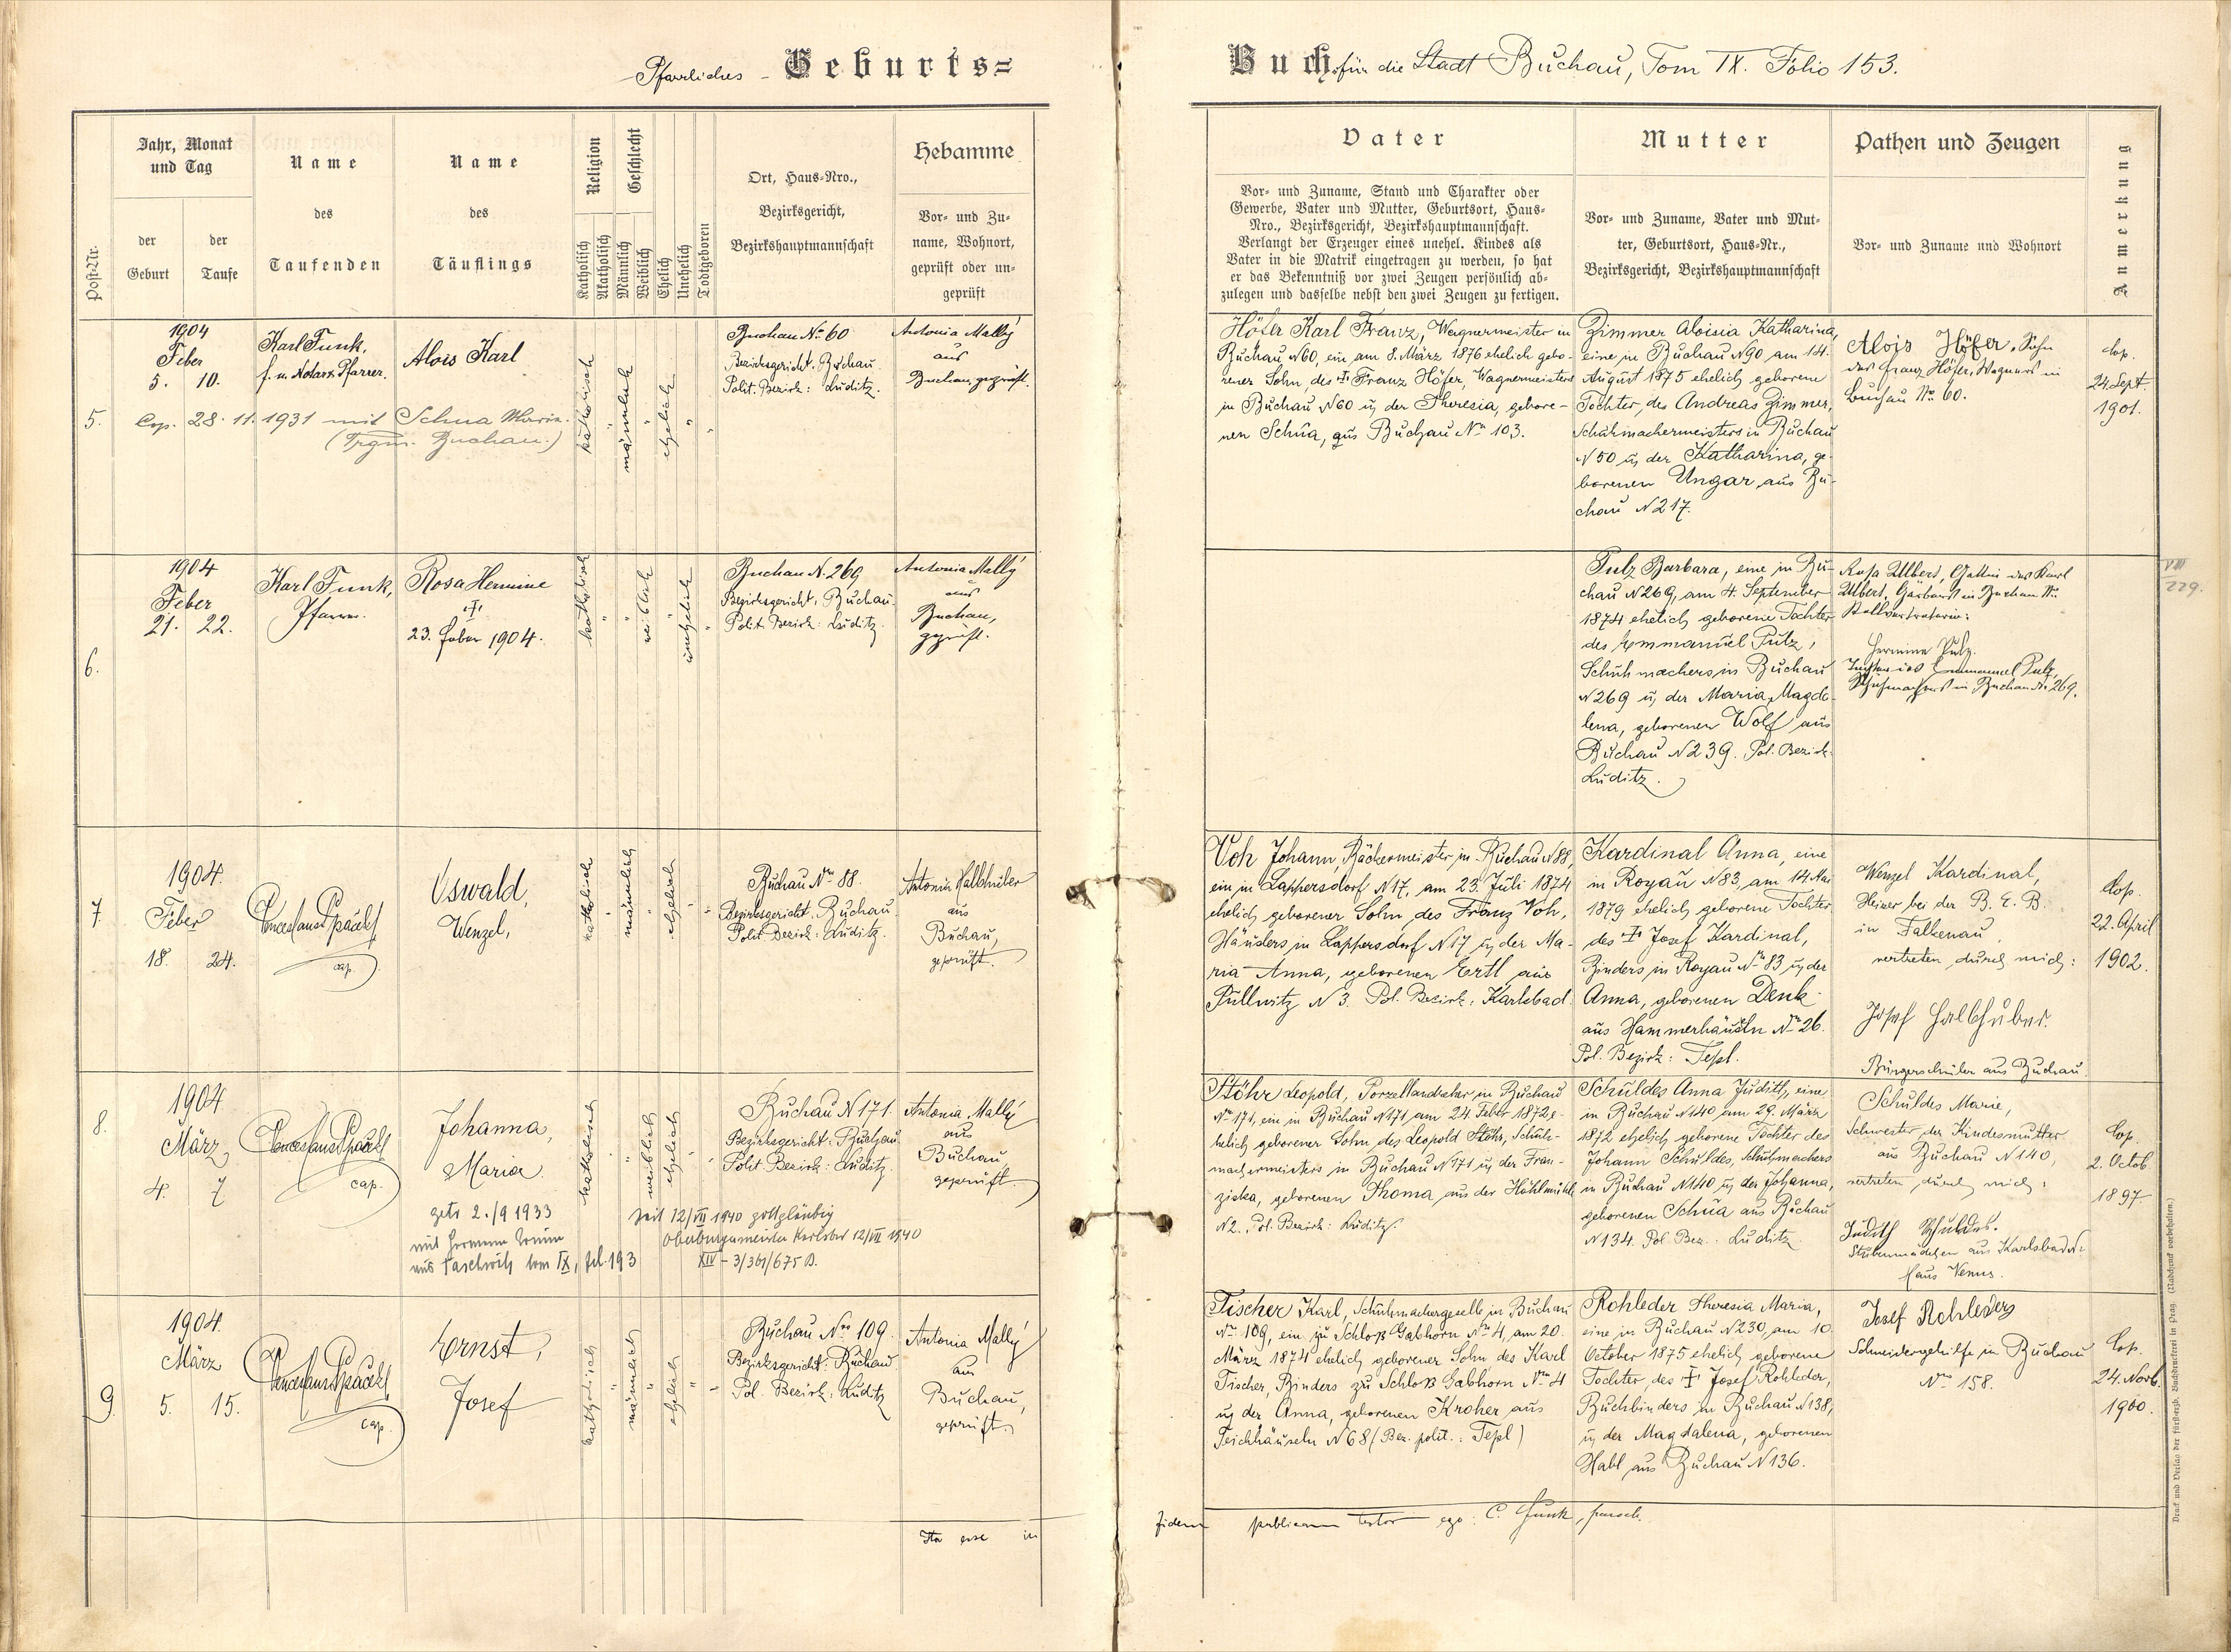 Pfarrliches Geburts=
Buch für die Stadt Buchau, Tom IX. Folio 153.
Post-Nr.
Jahr, Monat
und Tag
der
Geburt
der
Taufe
Name
des
Taufenden
Name
des
Täuflings
Religion
Katholisch
Akatholisch
Geschlecht
Männlich
Weiblich
Ehelich
Unehelich
Todtgeboren
Ort, Haus-Nro.,
Bezirksgericht,
Bezirkshauptmannschaft
Hebamme
Vor- und Zu-
name, Wohnort,
geprüft oder un-
geprüft
Vater
Vor- und Zuname, Stand und Charakter oder
Gewerbe, Vater und Mutter, Geburtsort, Haus-
Nro., Bezirksgericht, Bezirkshauptmannschaft.
Verlangt der Erzeuger eines unehel. Kindes als
Vater in die Matrik eingetragen zu werden, so hat
er das Bekenntniß vor zwei Zeugen persönlich ab-
zulegen und dasselbe nebst den zwei Zeugen zu fertigen.
Mutter
Vor- und Zuname, Vater und Mut-
ter, Geburtsort, Haus-Nr.,
Bezirksgericht, Bezirkshauptmannschaft
Pathen und Zeugen
Vor- und Zuname und Wohnort
Anmerkung
5.
1904
Feber
5. 10.
Karl Funk,
f. e. Notar. Pfarrer.
Alois Karl
Cop. 28. 11. 1931 mit Schua Maria
(Trgm. Buchau.)
katholisch
männlich
ehelich
Buchau No 60
Bezirksgericht: Buchau
Polit. Bezirk: Luditz.
Antonia Mallý
aus
Buchau, geprüft.
Höfer Karl Franz, Wagnermeister in
Buchau N60, ein am 8. März 1876 ehelich gebo-
rener Sohn, des † Franz Höfer, Wagnermeisters
in Buchau N60 u. der Theresia, gebore-
nen Schua, aus Buchau No 103.
Zimmer Aloisia Katharina,
eine in Buchau N90 am 14.
August 1875 ehelich geborene
Tochter, des Andreas Zimmer,
Schuhmachermeisters in Buchau
N50 u. der Katharina, ge-
borenen Ungar aus Bu-
chau N217.
Alois Höfer, Sohn
des Franz Höfer, Wagners in
Buchau No 60.
Cop.
24. Sept.
1901.
6.
1904
Feber
21. 22.
Karl Funk,
Pfarrer.
Rosa Hermine
†
23. Feber 1904.
katholisch
weiblich
unehelich
Buchau N. 269
Bezirksgericht: Buchau
Polit. Bezirk: Luditz.
Antonia Mallý
aus
Buchau,
geprüft.
Pulz Barbara, eine in Bu-
chau N269, am 4. September
1874 ehelich geborene Tochter
des Emmanuel Pulz,
Schuhmachers in Buchau
N269 u. der Maria Magda-
lena, geborenen Wolf aus
Buchau N239. Pol. Bezirk
Luditz.
Rosa Ulbert, Gattin des Karl
Ulbert, in Buchau No
Stellvertreterin:
Hermine Pulz.
Tochter des Emmanuel Pulz,
Schuhmachers in Buchau N. 269.
VIII
229.
7.
1904.
Feber
18. 24.
Wenceslaus Spáčil
cap.
Oswald,
Wenzel,
katholisch
männlich
ehelich
Buchau No 88.
Bezirksgericht: Buchau
Polit. Bezirk: Luditz.
Antonia Halbhuber
aus
Buchau,
geprüft.
Voh Johann, Bäckermeister in Buchau N88,
ein in Lappersdorf N17, am 23. Juli 1874
ehelich geborener Sohn, des Franz Voh,
Häuslers in Lappersdorf N17 u. der Ma-
ria Anna, geborenen Ertl aus
Pullwitz N3. Pol. Bezirk: Karlsbad.
Kardinal Anna, eine
in Royau N83, am 14. Mai
1879 ehelich geborene Tochter
des † Josef Kardinal,
Binders in Royau No 83 u. der
Anna, geborenen Denk
aus Hammerhäuseln No 26.
Pol. Bezirk: Tepl.
Wenzel Kardinal,
Heizer bei der B. E. B.
in Falkenau,
vertreten durch mich:
Josef Halbhuber.
Bürgerschüler aus Buchau.
Cop.
22. April
1902.
8.
1904
März
4. 7
Wenceslaus Spáčil
cap.
Johanna,
Maria
getr. 2./9 1933
mit Hermann
aus Taschwitz tom IX, fol. 193
katholisch
weiblich
ehelich
seit 12/VII 1940 gottgläubig
Oberbürgermeister Karlsbad 12/VII 1940
XIV - 3/361/675 B.
Buchau N171
Bezirksgericht: Buchau
Polit. Bezirk: Luditz.
Antonia Mallý
aus
Buchau
geprüft.
Stöhr Leopold, Porzellandreher in Buchau
No 171, ein in Buchau N171 am 24. Feber 1872 e-
helich geborener Sohn des Leopold Stöhr, Schuh-
machermeisters in Buchau N171 u. der Fran-
ziska, geborenen Thoma aus der Höhlmühle
N2., Pol. Bezirk: Luditz.
Schuldes Anna Judith, eine
in Buchau N140 am 29. März
1872 ehelich geborene Tochter des
Johann Schuldes, Schuhmachers
in Buchau N140 u. der Johanna,
geborenen Schua aus Buchau
N134. Pol. Bez.: Luditz.
Schuldes Marie,
Schwester der Kindesmutter
aus Buchau N140,
vertreten durch mich:
Judith Schuldes.
Stubenmädchen aus Karlsbad
Haus Venus.
Cop.
2. Octob.
1897
9.
1904.
März
5. 15.
Wenceslaus Spáčil
cap.
Ernst,
Josef
katholisch
männlich
ehelich
Buchau Nro 109.
Bezirksgericht: Buchau
Pol. Bezirk: Luditz
Antonia Mallý
aus
Buchau,
geprüft.
Fischer Karl, Schuhmachergeselle in Buchau
No 109, ein zu Schloß Gabhorn No 4, am 20.
März 1874 ehelich geborener Sohn des Karl
Fischer, Binders zu Schloß Gabhorn No 4
u. der Anna, geborenen Kroher aus
Teichhäuseln N68 (Bez. polit.: Tepl)
Rohleder Theresia Maria,
eine in Buchau N230, am 10.
October 1875 ehelich geborene
Tochter, des † Josef Rohleder,
Buchbinders in Buchau N138,
u. der Magdalena, geborenen
Habl aus Buchau N136.
Josef Rohleder
Schneidergehilfe in Buchau
Nro 158.
Cop.
24. Novb.
1900.
Ita esse in
fidem publicam testor ego: C. Funk, paroch.
Druck und Verlag der fürst-erzb. Buchdruckerei in Prag. (Nachdruck vorbehalten.)